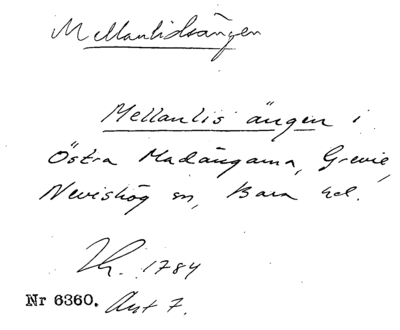 Mellanlidsängen
Mellanlis ängen i
Östra Madängarna, Grevie,
Nevishög sn, Bara hd.
1784
Nr 6360. Avt 7.